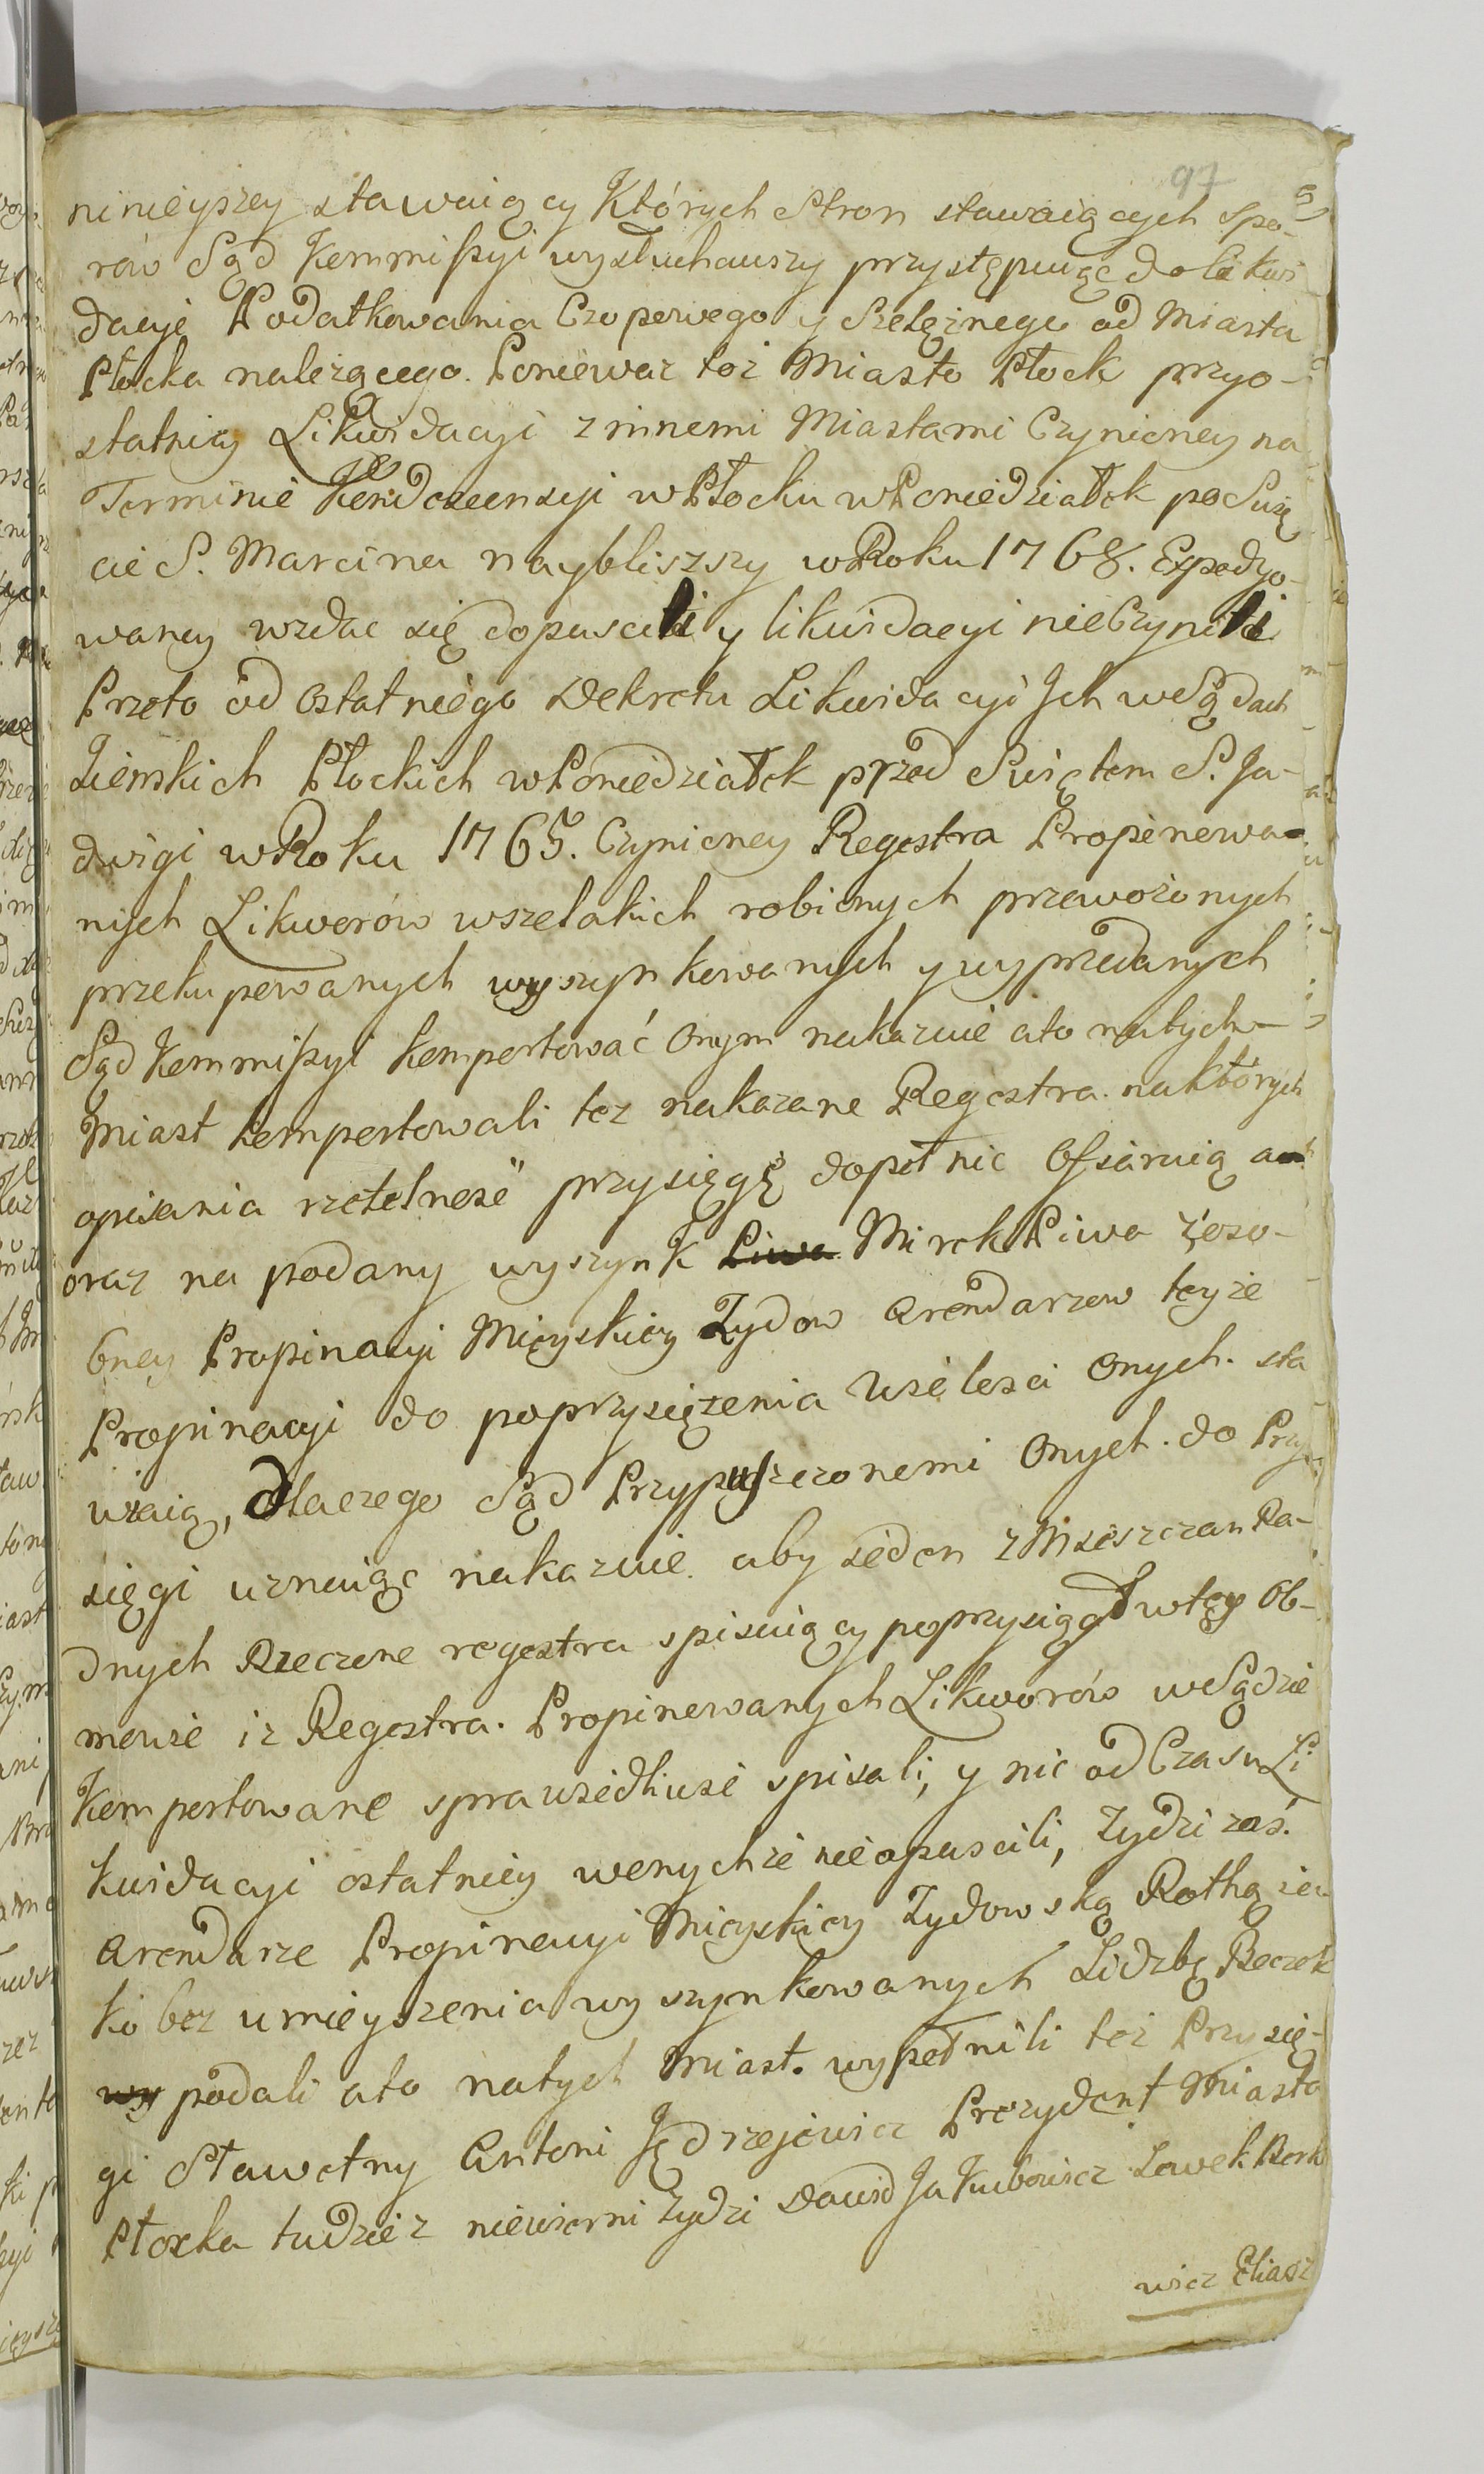 97
ninieyszey stawaiący Których Stron stawaiących Spo-
rów Sąd Kommiſsyi wysłuchawszy przystępuiąc do likwi
dacyi Podatkowania Czopowego y Szelężnego od Miasta
Płocka należącego. Ponieważ toż Miasto Płock przyo-
statniey Likwidacyi z innemi Miastami Czynioney na
Terminie Kondescensyi w Płocku w Poniedziałek po Swię
cie S. Marcina naybliszszy w Roku 1768. Expedyo-
waney wzdac się dopuscili y likwidacyi nie Czynili
Przeto od ostatniego Dekretu Likwidacyi Ich w Sądach
Ziemskich Płockich w Poniedziałek przed Swiętem S. Ja-
dwigi w Roku 1765. Czynioney Regestra Propinowa-
nych Likworów wszelakich robionych przewożonych
przekupowanych wyszynkowanych y wyprzedanych
Sąd Kommiſsyi komportować Onym nakazuie ato natych-
Miast komportowali też nakazane Regestra. na których
opisania rzetelność przysięgę dopełnic Ofiaruią a
oraz na podany wyszynk Piwa Mirek Piwa z oso-
bney Propinacyi Mieyskiey Zydow Arendarzow teyże
Propinacyi do poprzysiężenia Wielości Onych. sta
wiaią, dlaczego Sąd Przypuszczonemi Onych. do Przy
sięgi uznaiąc nakazuie. aby ieden z Mieszczan Ra-
dnych Rzeczone regestra spisuiący poprzysiągł w tey Ob-
mowie iż Regestra. Propinowanych Likworów w Sądzie
Komportowane sprawiedliwie spisali, y nic od Czasu Li
kwidacyi ostatniey w onychże nie opuscili, Zydzi zaś.
Arendarze Propinacyi Mieyskiey Zydowską Rothą ia
ko bez umieyszenia wyszynkowanych Lidzbę Beczek
wy podali ato natych Miast. wypełnili też Przysię-
gi Sławetny Antoni Jędrzejewicz Prezydent Miasta
Płocka tudzież niewierni Zydzi Dawid Jakubowicz Lewek Berk
wicz Eliasz